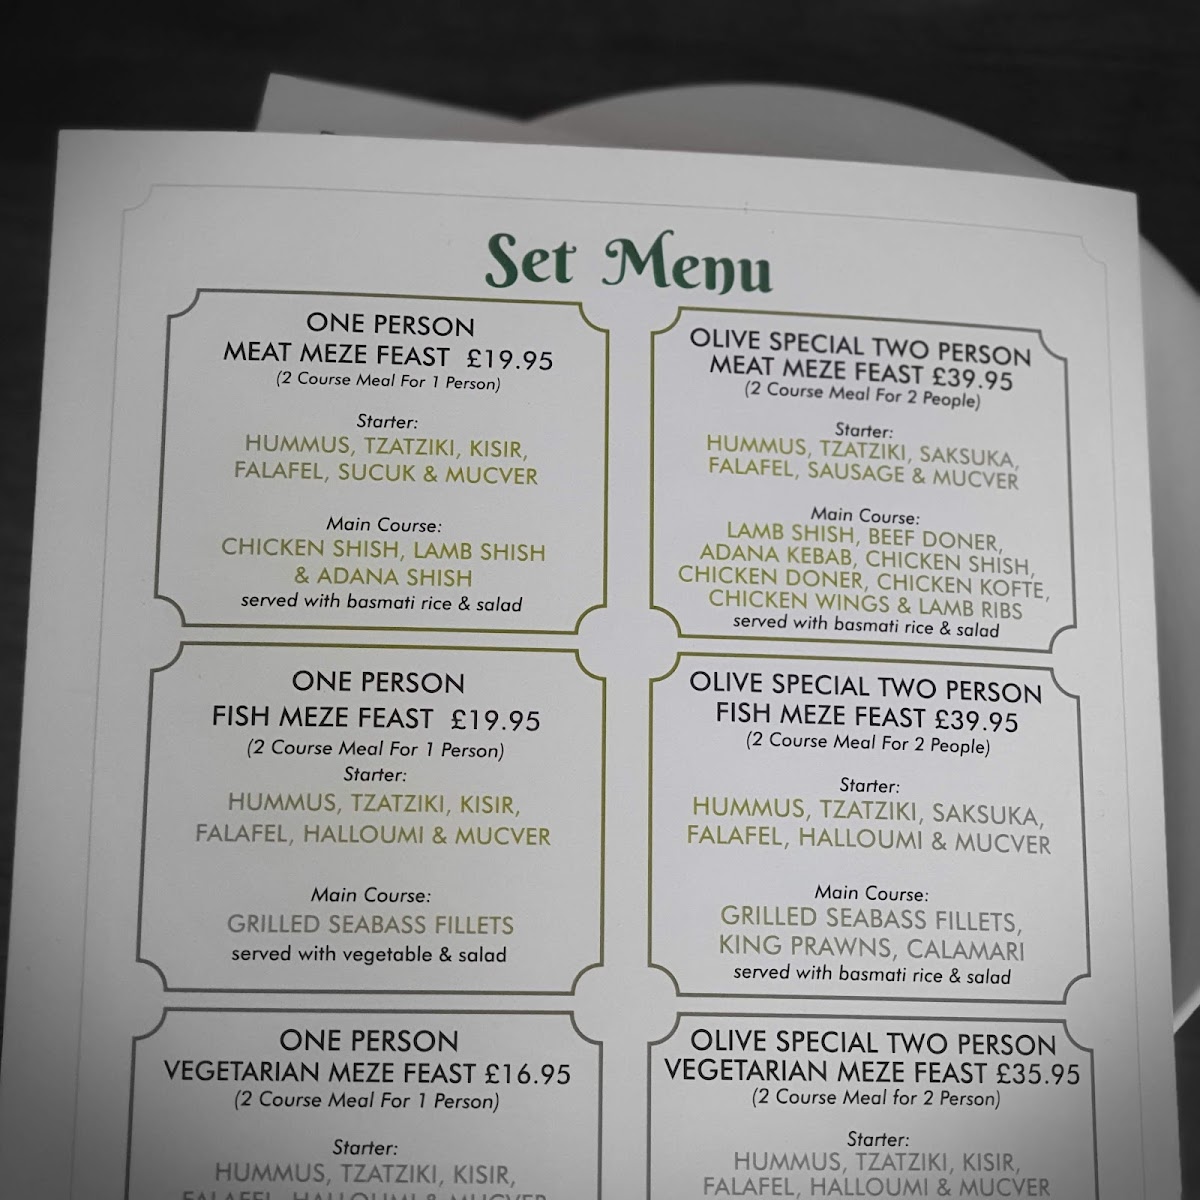 Set Menu
ONE PERSON
MEAT MEZE FEAST £19.95
(2 Course Meal For 1 Person)
Starter:
HUMMUS, TZATZIKI, KISIR,
FALAFEL, SUCUK & MUCVER
Main Course:
CHICKEN SHISH, LAMB SHISH
& ADANA SHISH
served with basmati rice & salad
OLIVE SPECIAL TWO PERSON
MEAT MEZE FEAST £39.95
(2 Course Meal For 2 People)
Starter:
HUMMUS, TZATZIKI, SAKSUKA,
FALAFEL, SAUSAGE & MUCVER
Main Course:
LAMB SHISH, BEEF DONER,
ADANA KEBAB, CHICKEN SHISH,
CHICKEN DONER, CHICKEN KOFTE,
CHICKEN WINGS & LAMB RIBS
served with basmati rice & salad
ONE PERSON
FISH MEZE FEAST £19.95
(2 Course Meal For 1 Person)
Starter:
HUMMUS, TZATZIKI, KISIR,
FALAFEL, HALLOUMI & MUCVER
Main Course:
GRILLED SEABASS FILLETS
served with vegetable & salad
OLIVE SPECIAL TWO PERSON
FISH MEZE FEAST £39.95
(2 Course Meal For 2 People)
Starter:
HUMMUS, TZATZIKI, SAKSUKA,
FALAFEL, HALLOUMI & MUCVER
Main Course:
GRILLED SEABASS FILLETS,
KING PRAWNS, CALAMARI
served with basmati rice & salad
ONE PERSON
VEGETARIAN MEZE FEAST £16.95
(2 Course Meal For 1 Person)
Starter:
HUMMUS, TZATZIKI, KISIR,
FALAFEL, HALLOUMI & MUCVER
OLIVE SPECIAL TWO PERSON
VEGETARIAN MEZE FEAST £35.95
(2 Course Meal for 2 Person)
Starter:
HUMMUS, TZATZIKI, KISIR,
FALAFEL, HALLOUMI & MUCVER